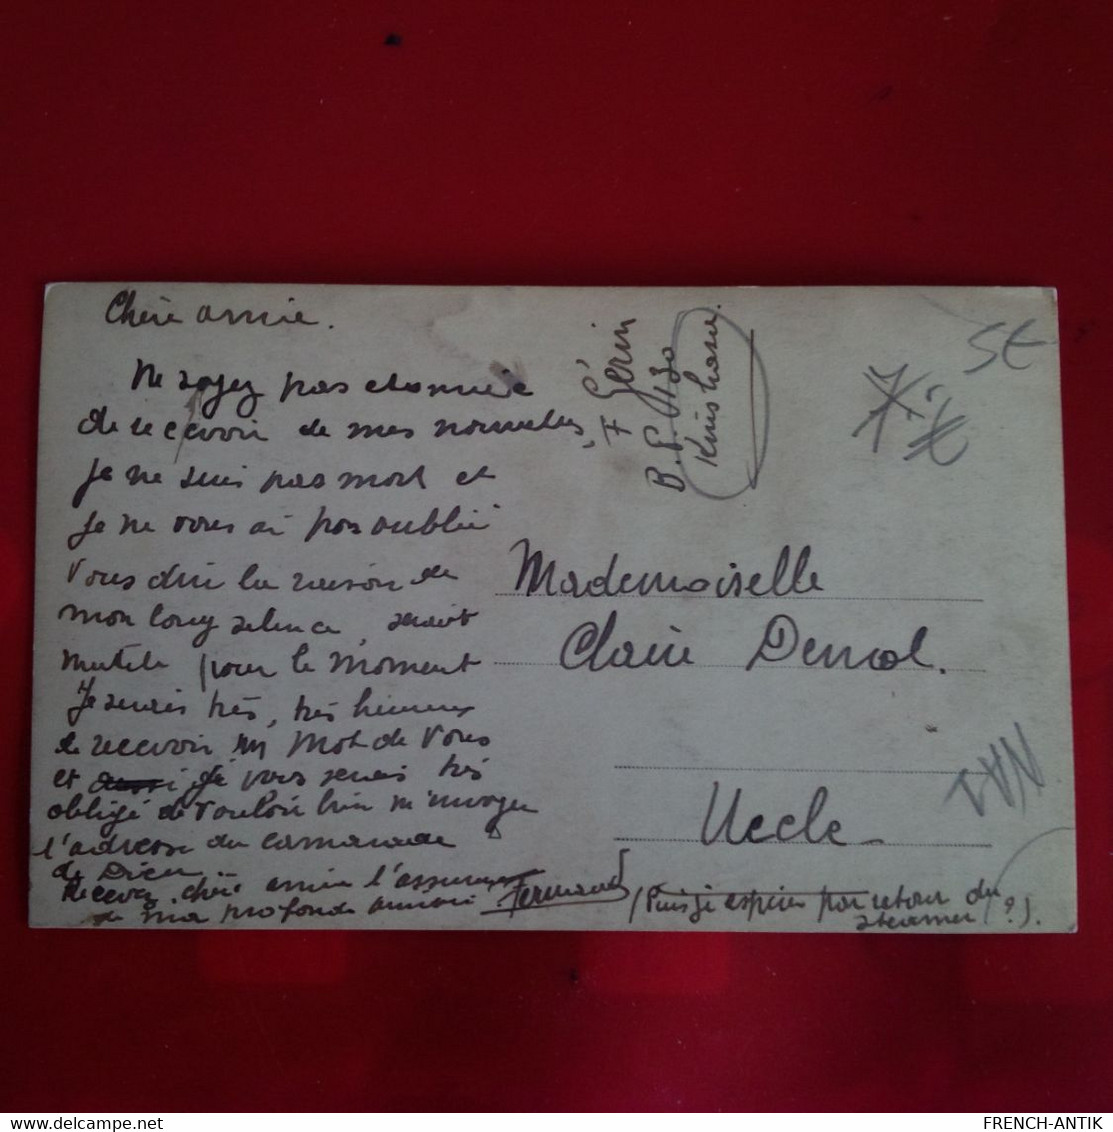 Chère amie.
Ne soyez pas etonnée
de recevoir de mes nouvelles,
je ne suis pas mort et
je ne vous ai pas oublié
Vous dire la raison de
mon long silence, serait
inutile pour le moment
Je serais très, très heureux
de recevoir un mot de Vous
et aussi je vous serais très
obligé de vouloir bien m'envoyer
l'adresse du camarade
de Dieu
Recevez chère amie l'assurance
de ma profonde amitié Fernand
(Puis je espérer par retour du
steamer ?).
F Gérin
B.P.
Kinshasa.
7.-€
5€
Mademoiselle
Claire Demol.
Uccle
FRENCH-ANTIK